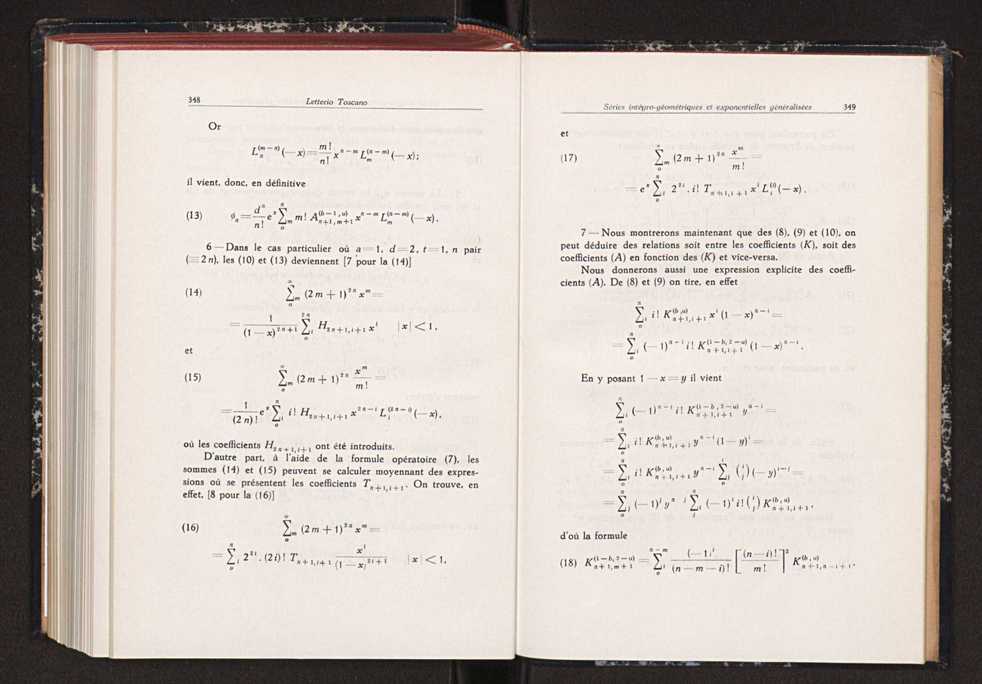 348 Letterio Toscano
Or
L_n^{(m−n)}(−x) = m!/n! x^{n−m} L_m^{(n−m)}(−x);
il vient, donc, en définitive
(13) ϕ_n = d^n/n! e^x ∑_m m! A_{n+1,m+1}^{(b−1,u)} x^{n−m} L_m^{(n−m)}(−x).
6 — Dans le cas particulier où a = 1, d = 2, t = 1, n pair
(= 2 n), les (10) et (13) deviennent [7 pour la (14)]
(14) ∑_m (2 m + 1)^{2n} x^m =
= 1/(1 − x)^{2n+1} ∑_i H_{2n+1,i+1} x^i |x| < 1,
et
(15) ∑_m (2 m + 1)^{2n} x^m/m! =
= 1/(2 n)! e^x ∑_i i! H_{2n+1,i+1} x^{2n−i} L_i^{(2n−i)}(−x),
où les coefficients H_{2n+1,i+1} ont été introduits.
D'autre part, à l'aide de la formule opératoire (7), les
sommes (14) et (15) peuvent se calculer moyennant des expres-
sions où se présentent les coefficients T_{n+1,i+1}. On trouve, en
effet, [8 pour la (16)]
(16) ∑_m (2 m + 1)^{2n} x^m =
= ∑_i 2^{2i} . (2 i)! T_{n+1,i+1} x^i/(1 − x)^{2i+1} |x| < 1,
Séries intégro-géométriques et exponentielles généralisées 349
et
(17) ∑_m (2 m + 1)^{2n} x^m/m! =
= e^x ∑_i 2^{2i} . i! T_{n+1,i+1} x^i L_i^{(i)}(− x).
7 — Nous montrerons maintenant que des (8), (9) et (10), on
peut déduire des relations soit entre les coefficients (K), soit des
coefficients (A) en fonction des (K) et vice-versa.
Nous donnerons aussi une expression explicite des coeffi-
cients (A). De (8) et (9) on tire, en effet
∑_i i! K_{n+1,i+1}^{(b,u)} x^i (1 − x)^{n−i} =
= ∑_i (− 1)^{n−i} i! K_{n+1,i+1}^{(1−b,2−u)} (1 − x)^{n−i}.
En y posant 1 − x = y il vient
∑_i (− 1)^{n−i} i! K_{n+1,i+1}^{(1−b,2−u)} y^{n−i} =
= ∑_i i! K_{n+1,i+1}^{(b,u)} y^{n−i} (1 − y)^i =
= ∑_i i! K_{n+1,i+1}^{(b,u)} y^{n−i} ∑_j (i j) (− y)^{i−j} =
= ∑_j (− 1)^j y^{n−j} ∑_i (− 1)^i i! (i j) K_{n+1,i+1}^{(b,u)},
d'où la formule
(18) K_{n+1,m+1}^{(1−b,2−u)} = ∑_i (− 1)^i/(n − m − i)! [(n − i)!/m!]^2 K_{n+1,n−i+1}^{(b,u)}.